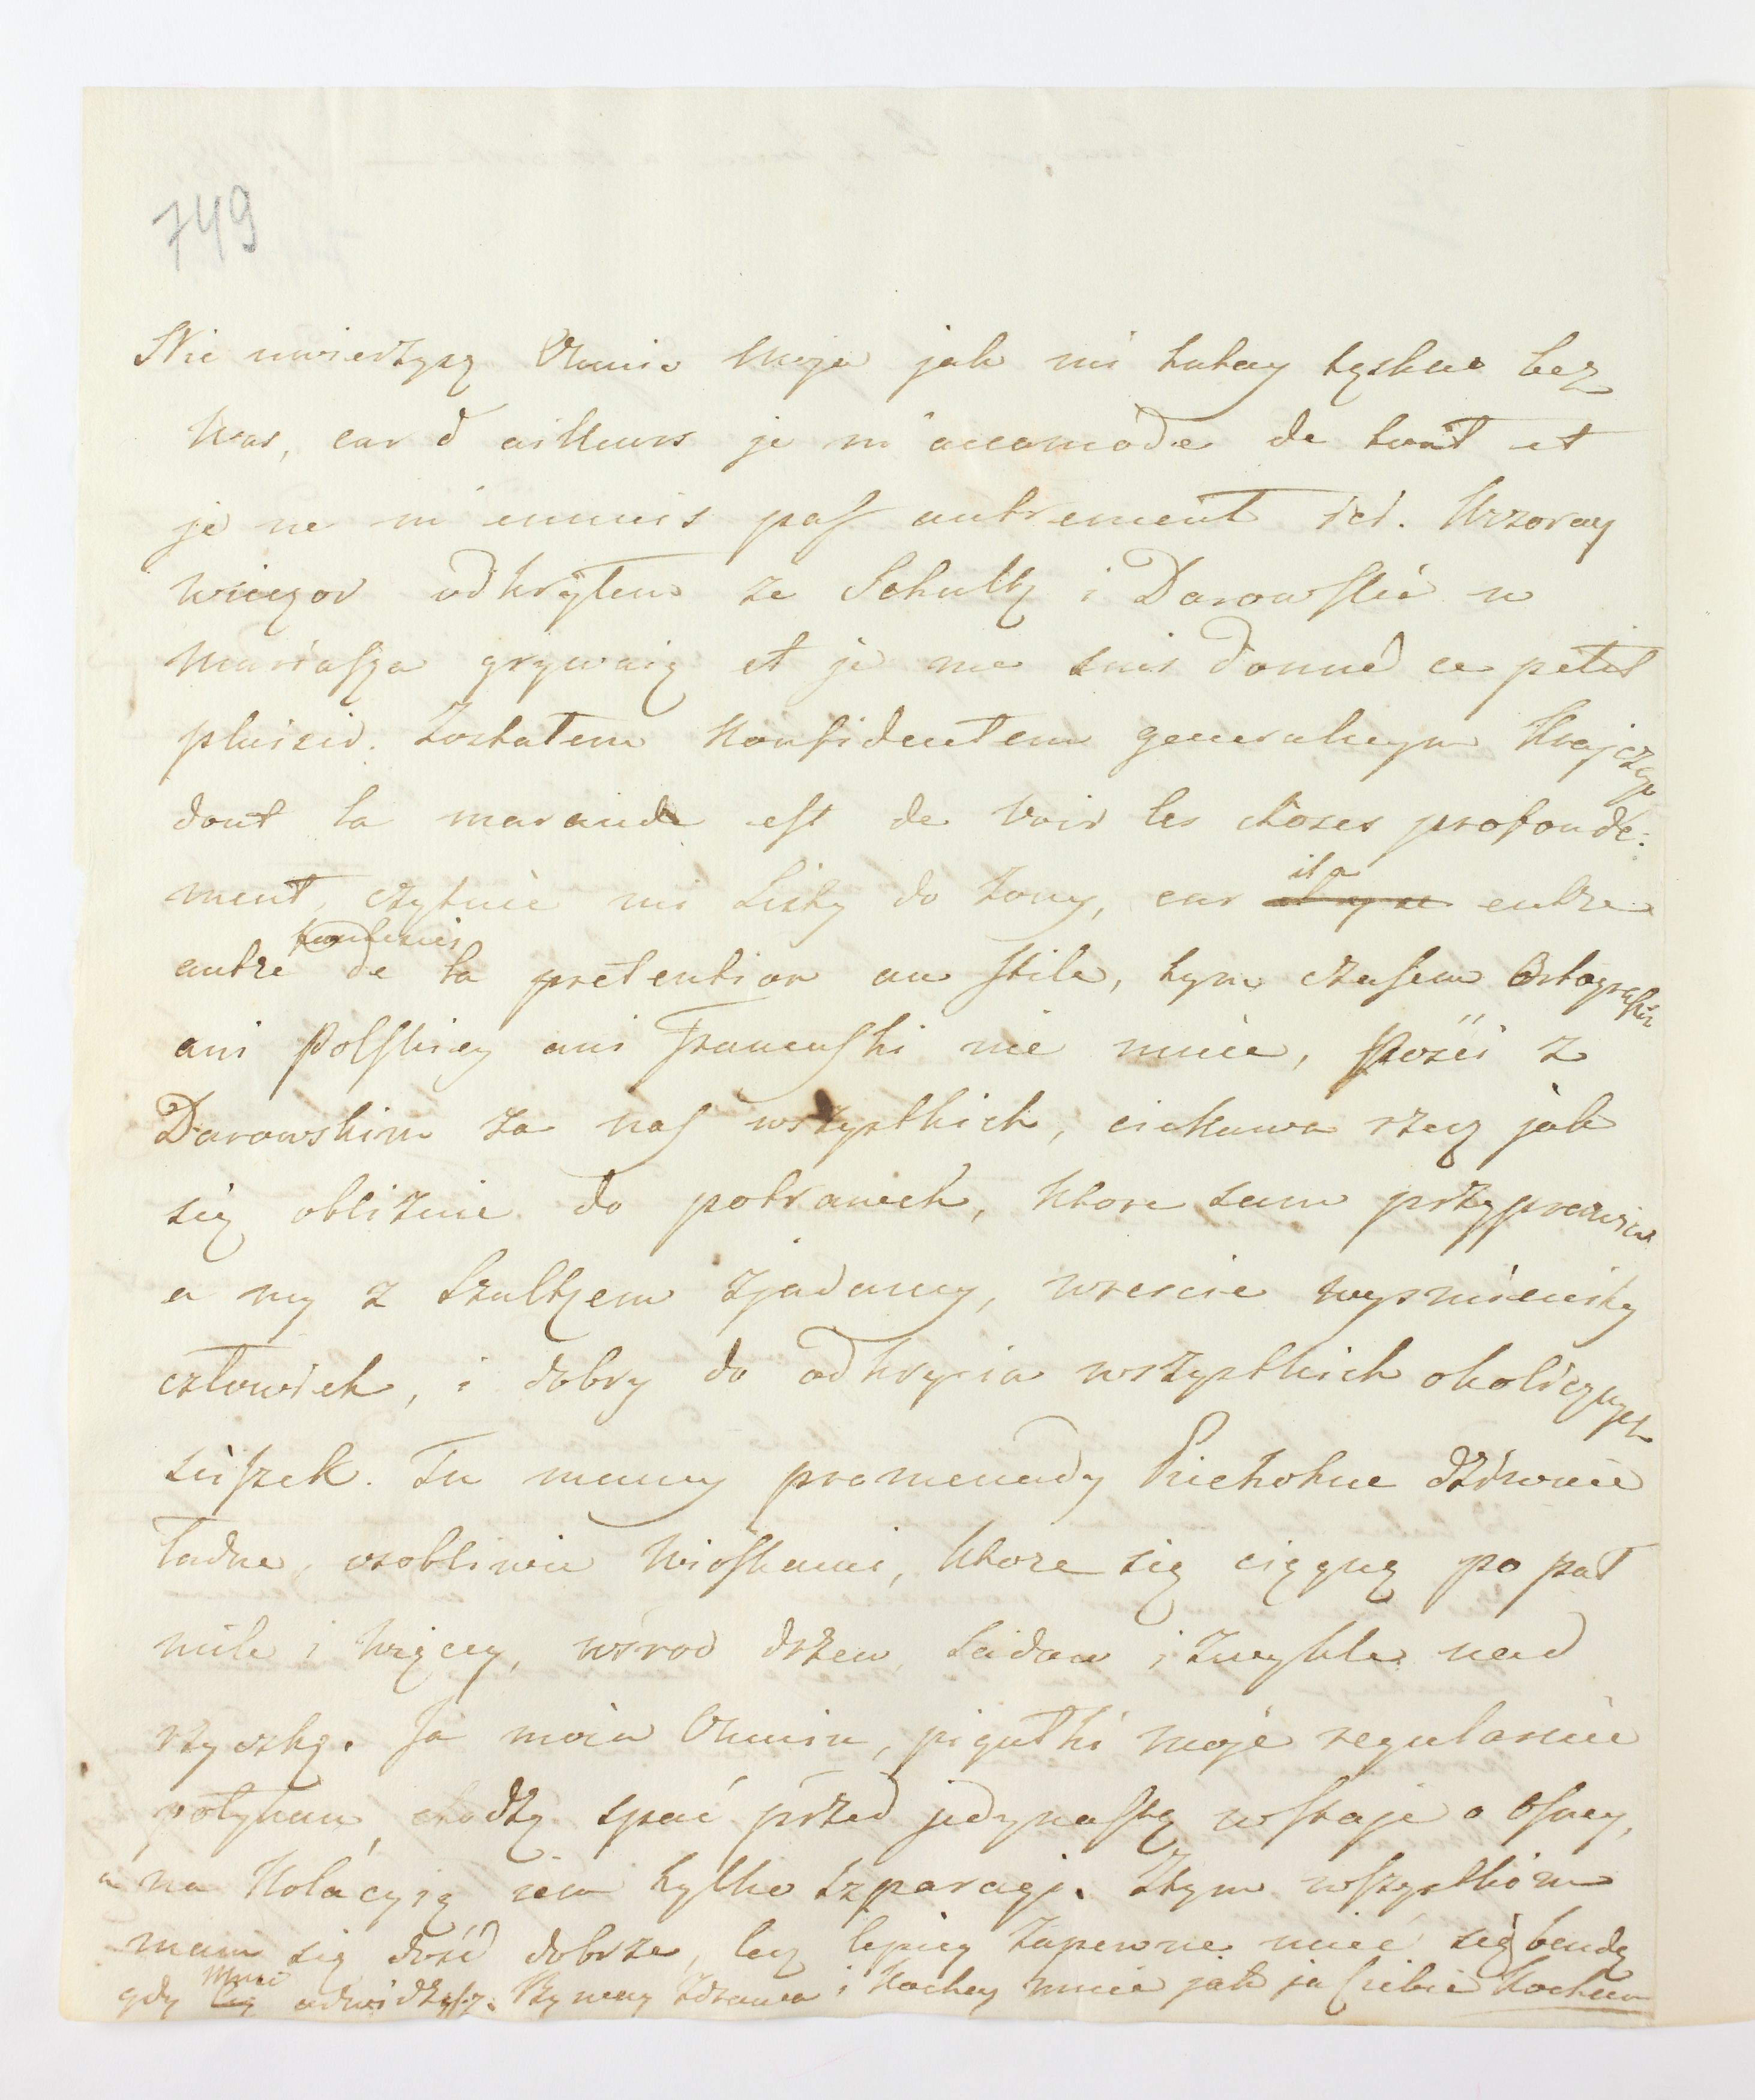 749
Nie uwierzysz Omnio Moja jak mi tutay tęskno bez
Was, car d'ailleurs je m'accomode de tout et
je ne m'ennuis pas autrement ici. Wczoray
wieczor odkryłem ze Schultz i Darowskie w
Mariasza grywaią et je me suis donné ce petit
plaisir. Zostałem Konfidentem generalnym
dont la est de voir les choses profonde:
ment, czytuie mi Listy do Zony, car il a entre
autre de la pretention au stile, tym czasem Ortografii
ani Polskiey ani Francuski nie umie, Pości z
Darowskim za nas wszystkich, ciekawa rzecz jak
się obliznie do potrawek, Ktore sam przyprawia
a my z Szultzem zjadamy, wreście wysmienity
człowiek, i dobry do odkrycia wszystkich okolicznych
scieszek. Tu mamy promenady Piechotne dziwnie
ładne, osobliwie Wioskami, Ktore się ciągną po puł
mile i więcey, wśrod drzew, Sadow i zwykle nad
rzyczką. Ja moia Omnio, pigułki moje regularnie
połykam, chodzę spać przed jedynastą wstaje o Osmey,
a na Kolacyią iem tylko szparagi. Ztym wszystkim
mam się dość dobrze, lecz lepiey zapewne mieć się bendę
gdy Mnie odwidzysz. Bywaj Zdrowa i Kochay mnie jak ja Ciebie Kocham